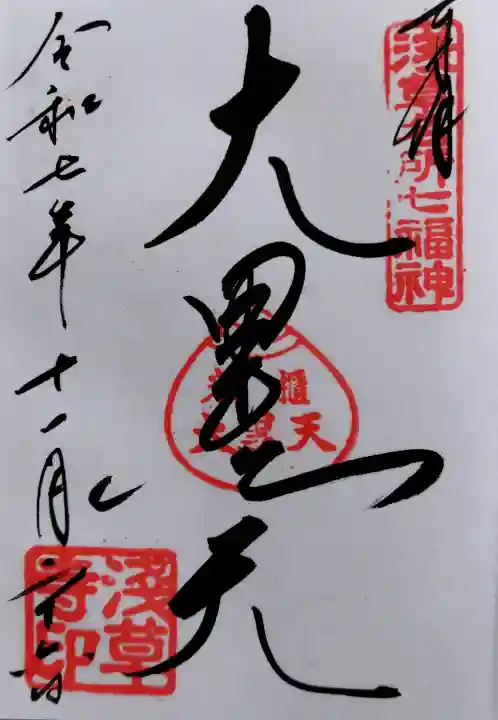 奉拝
浅草名所七福神
大黒天
米櫃
大黒天
令和七年十一月二十六日
浅草寺印